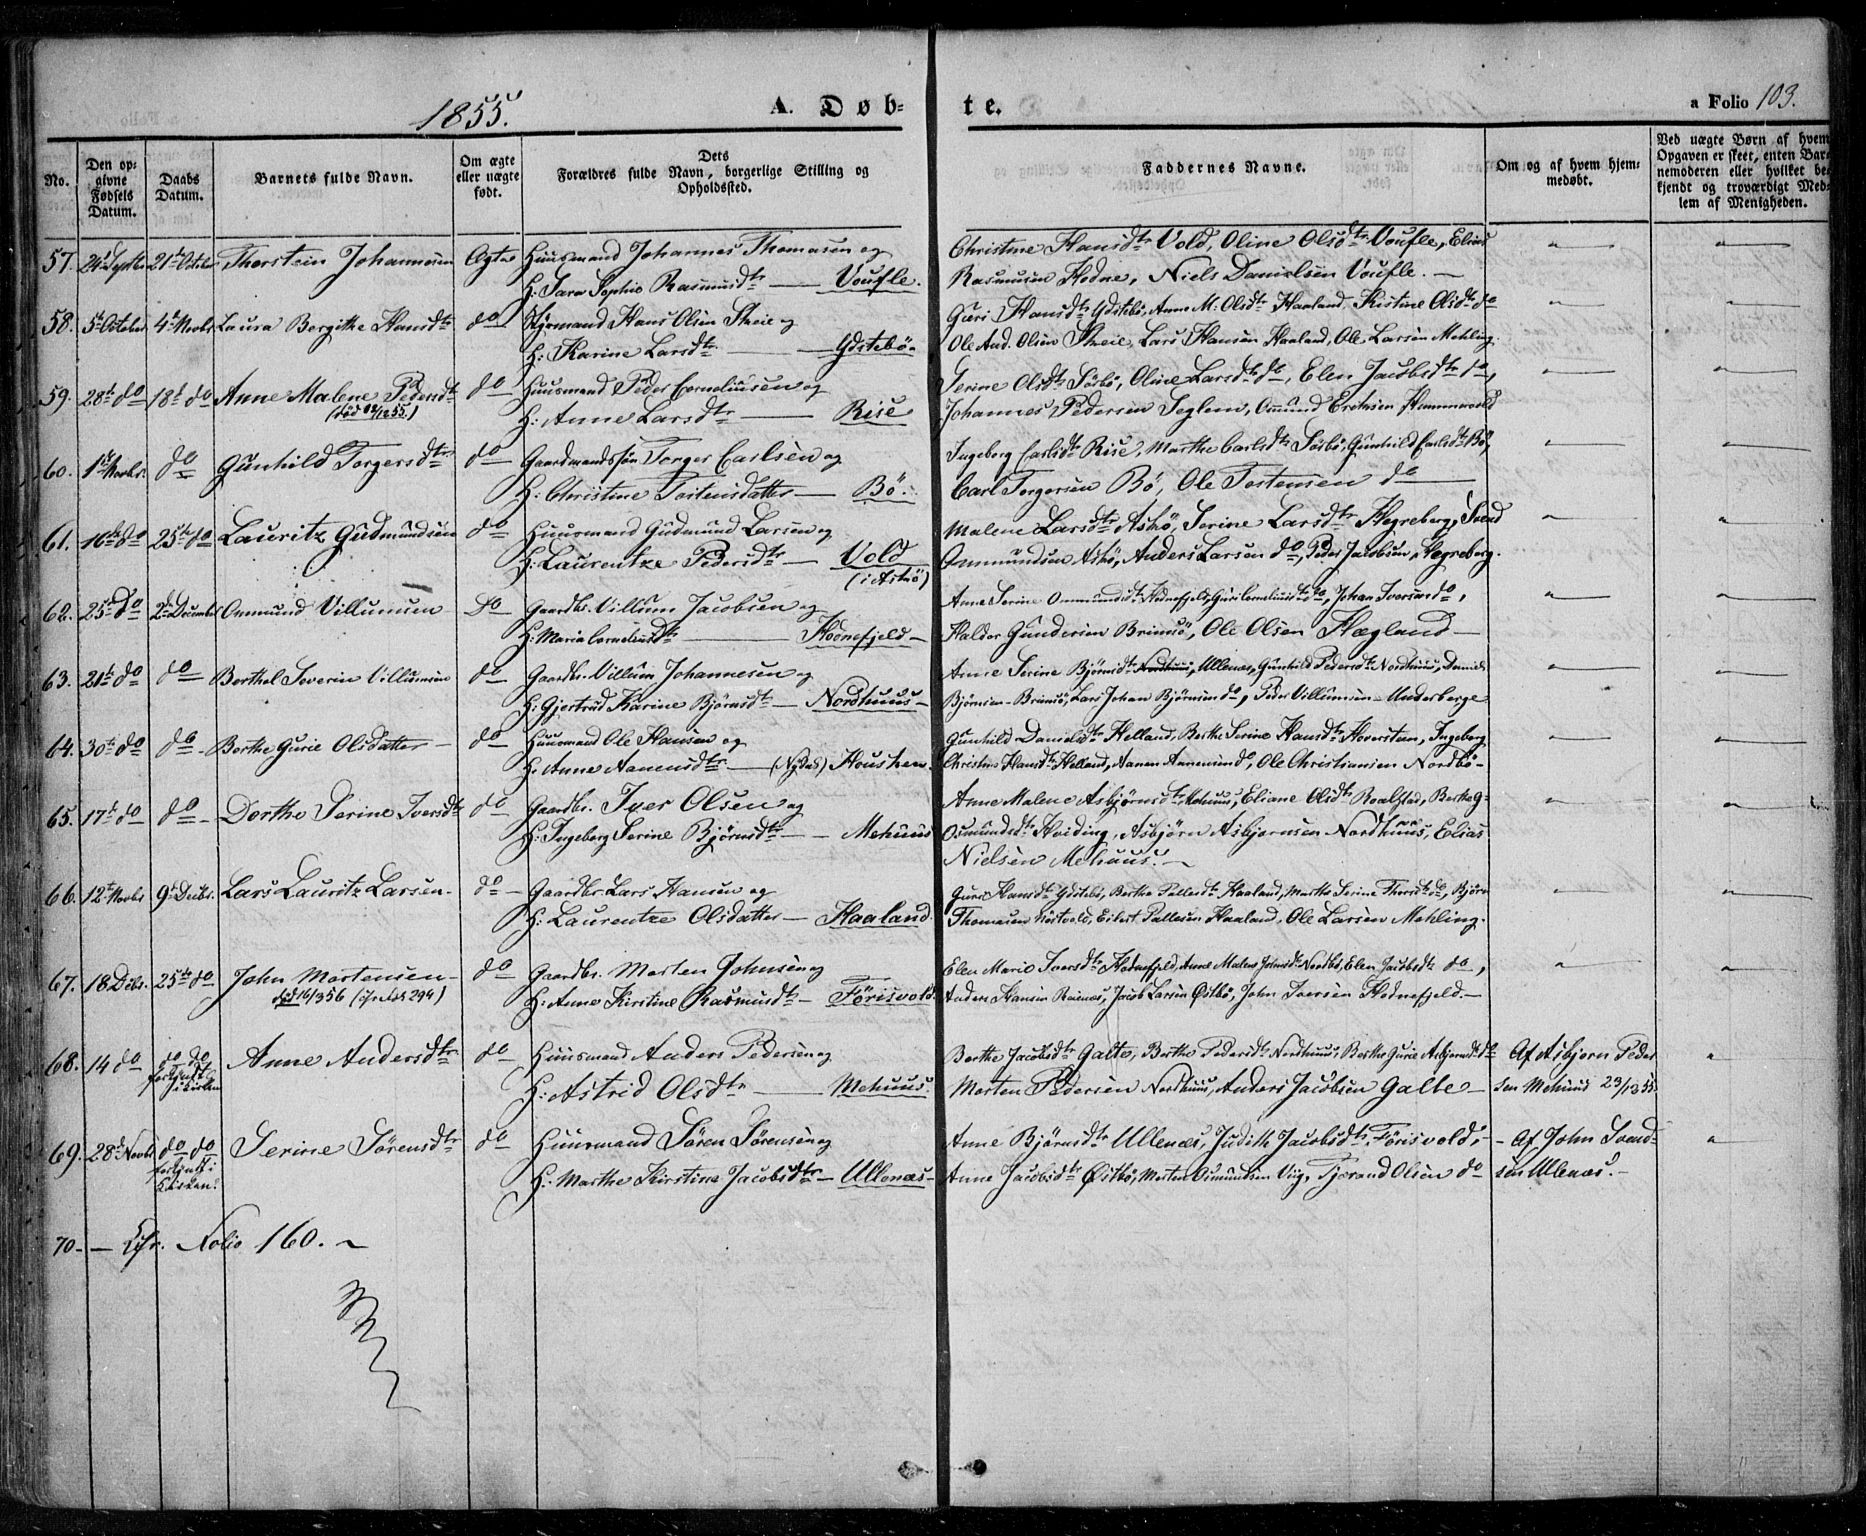 1855.
A. Døb-
te.
a Folio 103.
No.
Den op-
givne
Fødsels
Datum.
Daabs
Datum.
Barnets fulde Navn.
Om ægte
eller uægte
født.
Dets
Forældres fulde Navn, borgerlige Stilling og
Opholdssted.
Faddernes Navne.
Om og af hvem hjem-
medøbt.
Ved uægte Børn af hvem
Opgaven er skeet, enten Bar-
nemoderen eller hvilket be-
kjendt og troværdigt Med-
lem af Menigheden.
57. 24d Septbr 21d Octobr Thorstein Johannesen Ægte Huusmand Johannes Thomasen og
H: Sara Sophie Rasmusdtr — Voufle.
Christine Hansdtr Vold, Oline Olsdtr Voufle, Elias
Rasmusen Hodne, Niels Danielsen Voufle. —
58. 5d October 4d Novbr Laura Bergithe Hansdtr do Hans Olsen Skeie og
H: Karine Larsdtr — Ydstebö.
Guri Hansdtr Ydstebö, Anne M: Olsdtr Haaland, Kistine Olsdtr do
Ole And. Olsen Skeie, Lars Hansen Haaland, Ole Larsen Mehling.
59. 28d do 18d do Anne Malene Pedersdtr do Huusmand Peder Corneliusen og
H: Anne Larsdtr — Rise
Serine Olsdtr Sörbö, Oline Larsdtr do, Elen Jacobsdtr do,
Johannes Pedersen Seglem, Omund Eriksen
60. 1d Novbr. do Gunhild Torgersdtr do Gaardmandssön Torger Carlsen og
H: Christine Tostensdatter — Bö.
Ingeborg Carlsdtr Rise, Marthe Carlsdtr Sörbö, Gunhild Carlsdtr Bö,
Carl Torgersen Bö, Ole Tostensen do
61. 16de do 25de do Lauritz Gudmundsen do Huusmand Gudmund Larsen og
H: Laurentze Pedersdtr — Vold
(i Askö)
Malene Larsdtr Askö, Serine Larsdtr Hegreberg, Svend
Ommundsen Askö, Anders Larsen do, Peder Jacobsen Hegreberg.
62. 25d Do 2d December Ommund Villumsen Do Gaardbr. Villum Jacobsen og
H: Maria Corneliusdtr — Hodnefjeld —
Anne Serine Ommundsdtr Hodnefjeld, Guri Corneliusdtr do, Johan Iversen do,
Haldor Gundersen Brimsö, Ole Olsen Hægland —
63. 21d do do Berthel Severin Villumsen do Gaardbr. Villum Johannesen og
H: Gjertrud Karine Björnsdtr — Nordhuus —
Anne Serine Björnsdtr Nordhuus, Ullenæs, Gunhild Pedersdtr Nordhuus, Daniel
Björnsen Brimsö, Lars Johan Björnsen do, Peder Villumsen Underberge
64. 30te do do — Berthe Gurie Olsdatter — do Huusmand Ole Hansen og
H: Anne Aanensdtr — Housken.
Gunhild Danielsdtr Helland, Berthe Serine Hansdtr Hoversteen, Ingeborg
Christine Hansdtr Helland, Aanen Aanensen do, Ole Christiansen Nordbö —
65. 17d do do — Dorthe Serine Iversdtr do Gaardbr. Iver Olsen og
H: Ingeborg Serine Björnsdtr — Mehuus
Anne Malene Asbjörnsdtr Mehuus, Eliane Olsdtr Roalstad, Berthe G.
Osmundsdtr Hviding, Asbjörn Asbjörnsen Nordhuus, Elias
Nielsen Mehuus. —
66. 12te Novbr 9d Decbr. Lars Lauritz Larsen. do — Gaardbr. Lars Hansen og
H: Laurentze Olsdatter — Haaland.
Guri Hansdtr Ydstebö, Berthe Pallesdtr Haaland, Marthe Serine Thorsdtr do, Björn
Thomasen, Eilert Pallesen Haaland, Ole Larsen Mehling.
67. 18 Dcbr. 25de do John Mortensen — do Gaardbr. Morten Johnsen og
H: Anne Kirstine Rasmusdtr — Förisvold.
Elen Marie Iversdtr Hodnefjeld, Anne Malene Johnsdtr Nordbö, Elen Jacobsdtr do,
Anders Hansen, Jacob Larsen Østbö, John Iversen Hodnefjeld. —
68. 14 do do do
fortsendt
i Kirken Anne Andersdtr do Huusmand Anders Pedersen og
H: Astrid Olsdtr — Mehuus.
Berthe Jacobsdtr Galte, Berthe Pedersdtr Nordhuus, Berthe Gurie Asbjörnsdtr do
Morten Pedersen Nordhuus, Anders Jacobsen Galte —
Af Asbjorn Peder
sen Mehuus 23/12 55.
69. 28d Novbr do do
i
Kirken. Serine Sörensdtr do Huusmand Sören Sörensen og
H: Marthe Kirstine Jacobsdtr — Ullenæs —
Anne Björnsdtr Ullenæs, Judith Jacobsdtr Förisvold,
Anne Jacobsdtr Østbö, Morten Osmundsen Viig, Tjerand Olsen do
— Af John Svend-
sen Ullenæs. —
70. — Cfr. Folio 160. —